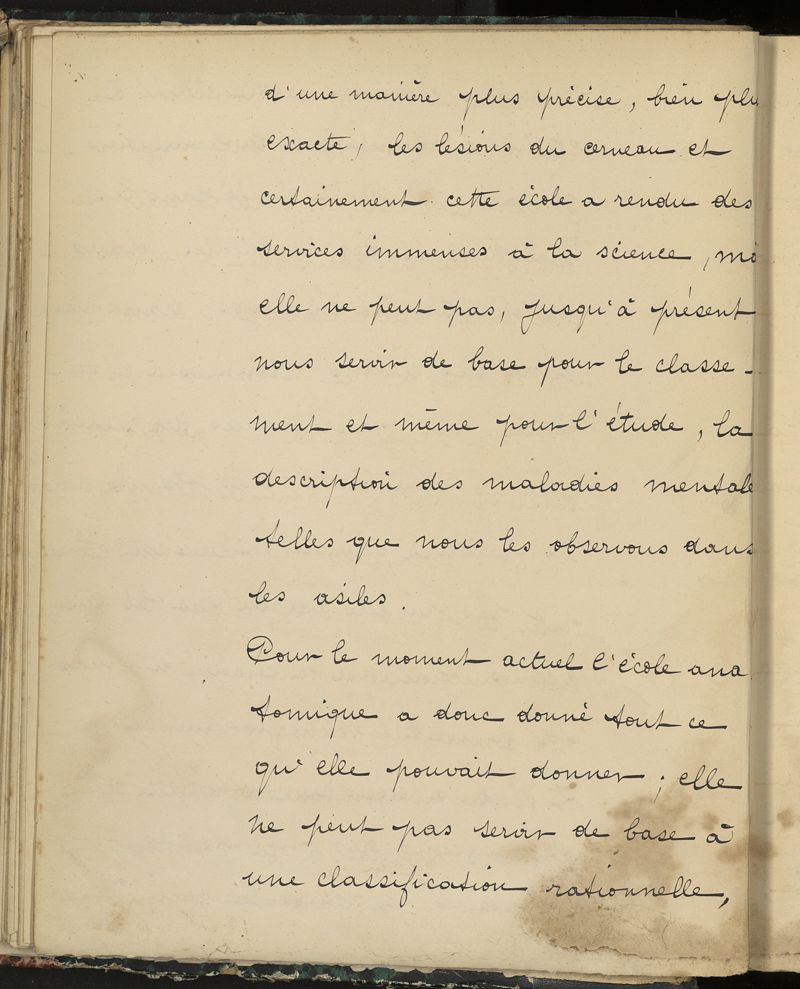 d'une manière plus précise, bien plu
exacte, les lésions du cerveau et
certainement cette école a rendu des
services immenses à la science, ma
elle ne peut pas, jusqu'à présent
nous servir de base pour le classe-
ment et même pour l'étude, la
description des maladies mentale
telles que nous les observons dans
les asiles.
Pour le moment actuel l'école ana
tomique a donc donné tout ce
qu'elle pouvait donner ; elle
ne peut pas servir de base à
une classification rationnelle,